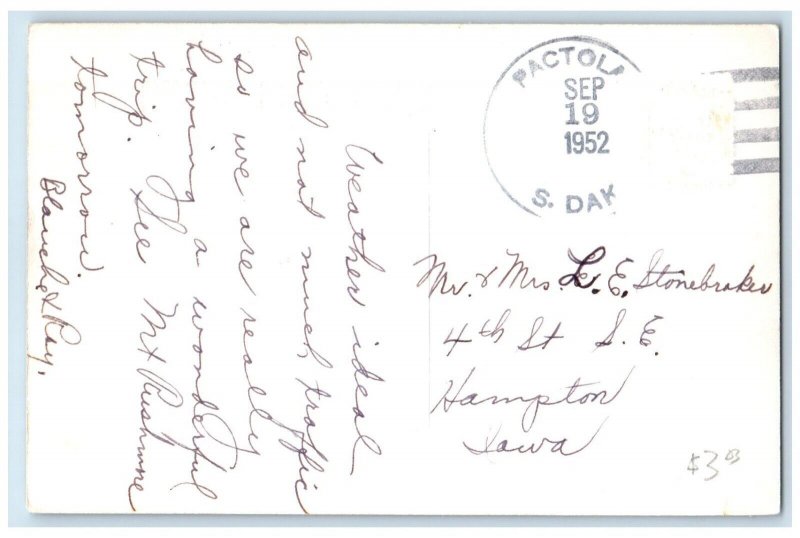 Weather ideal
and not much traffic
so we are really
having a wonderful
trip. See Mt Rushmore
tomorrow.
Blanche & Ray.
PACTOLA
SEP
19
1952
S. DAK
Mr. & Mrs. L. E. Stonebraker
4th St S. E.
Hampton
Iowa
$3.00